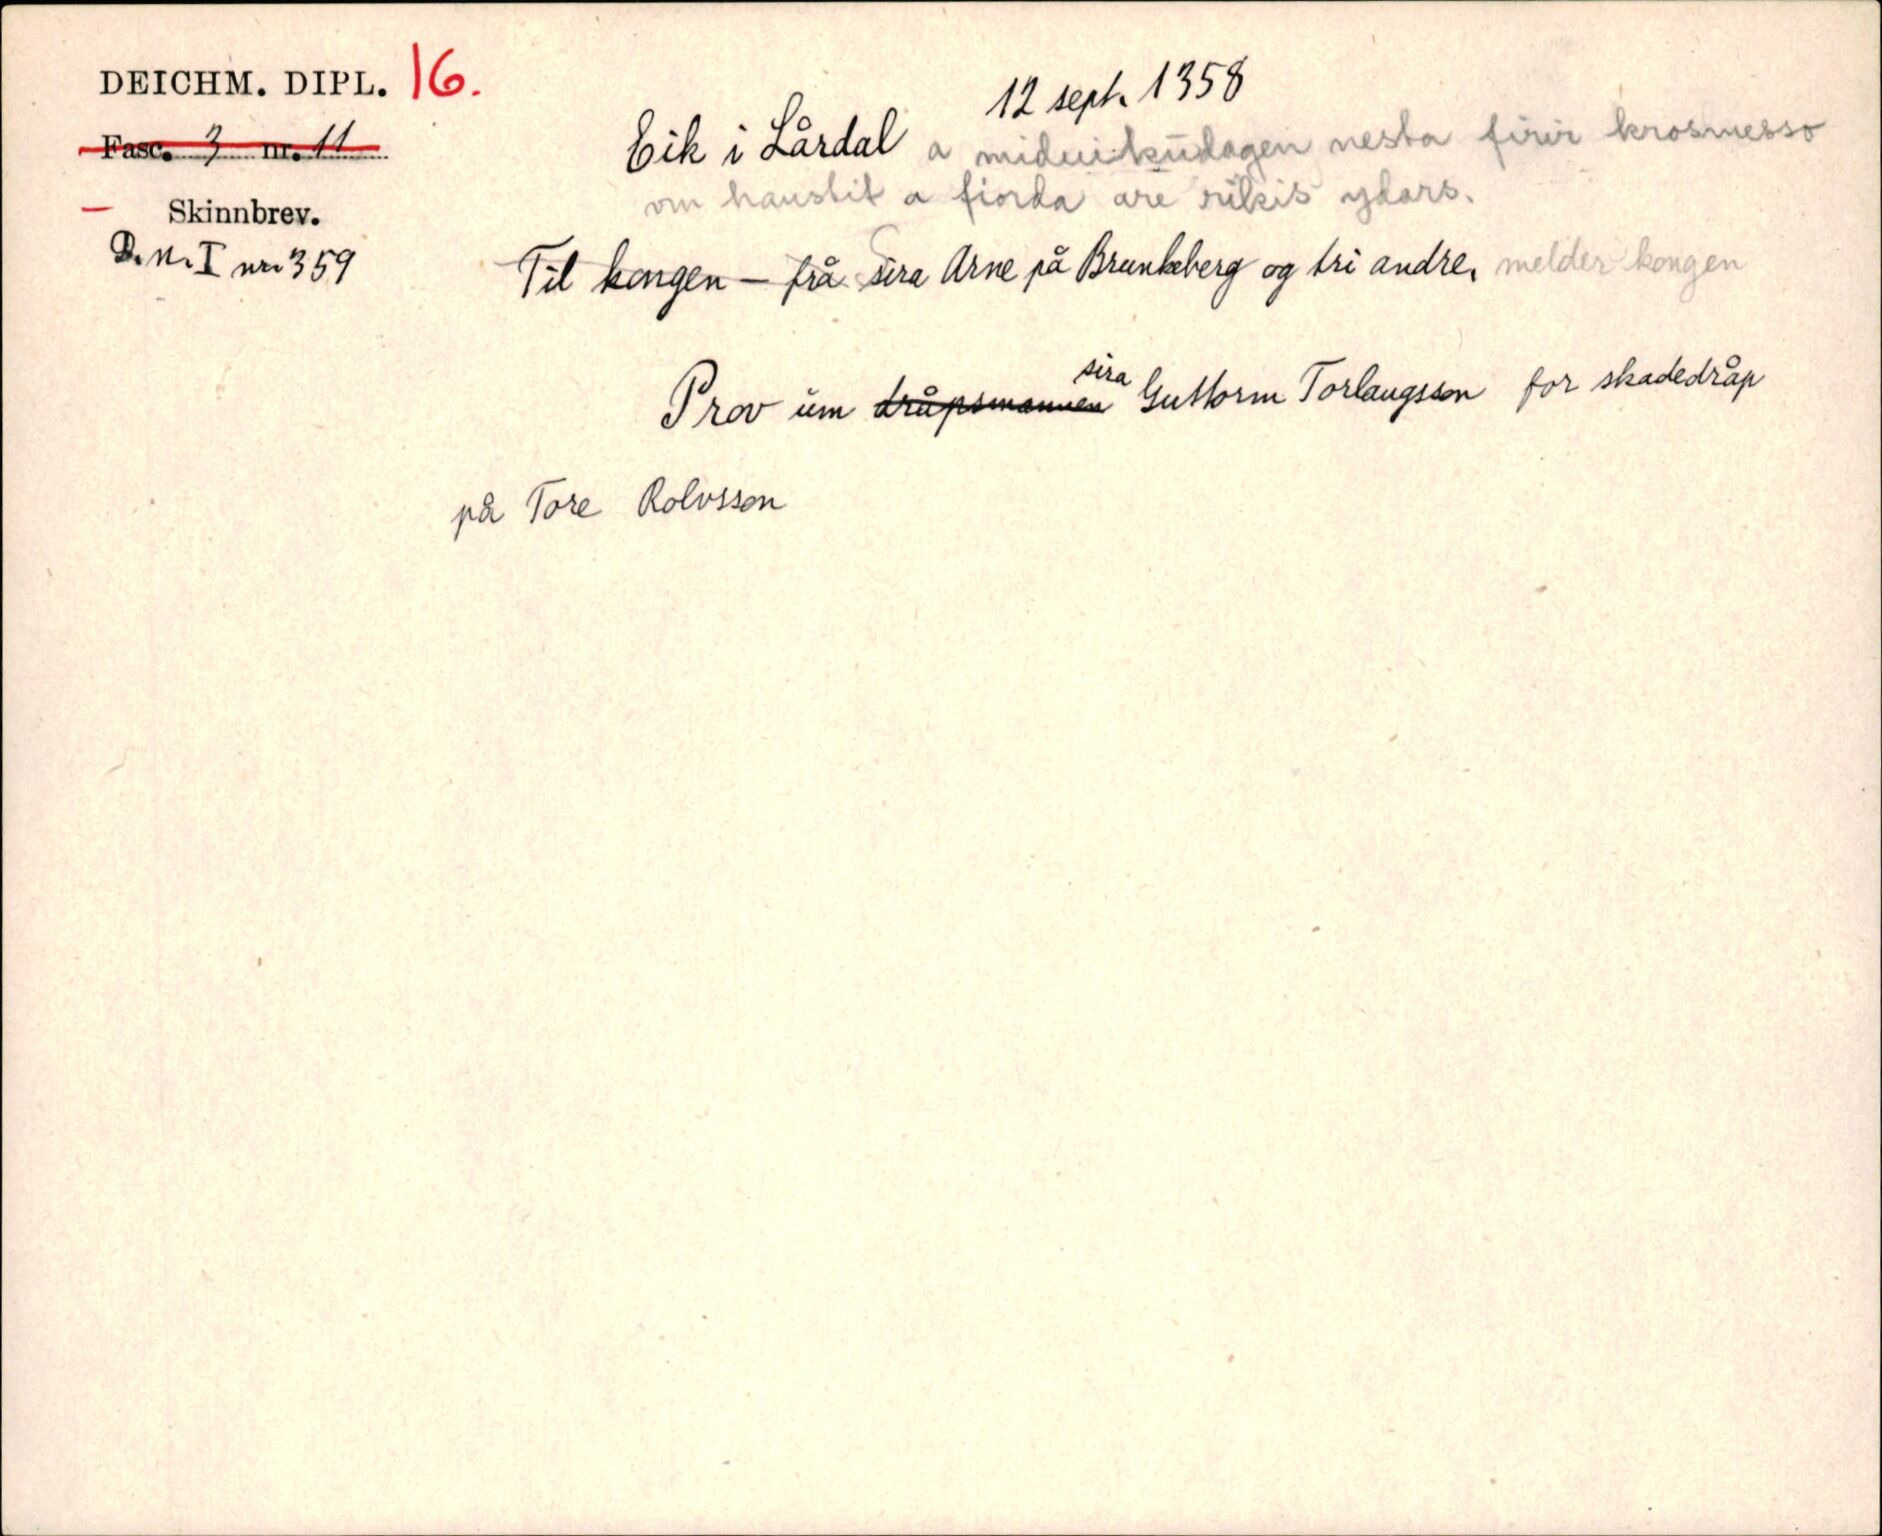 DEICHM. DIPL. 16.
12 sept. 1358
Fasc. 3 nr. 11
Eik i Lårdal a miduikudagen nesta firir krosmesso
om haustit a fiorda are rikis ydars.
Skinnbrev.
D.N. I nr. 359
Til kongen – frå sira Arne på Brunkeberg og tri andre, melder kongen
sira
Prov um dråpsmannen Guttorm Torlaugsson for skadedråp
på Tore Rolvsson